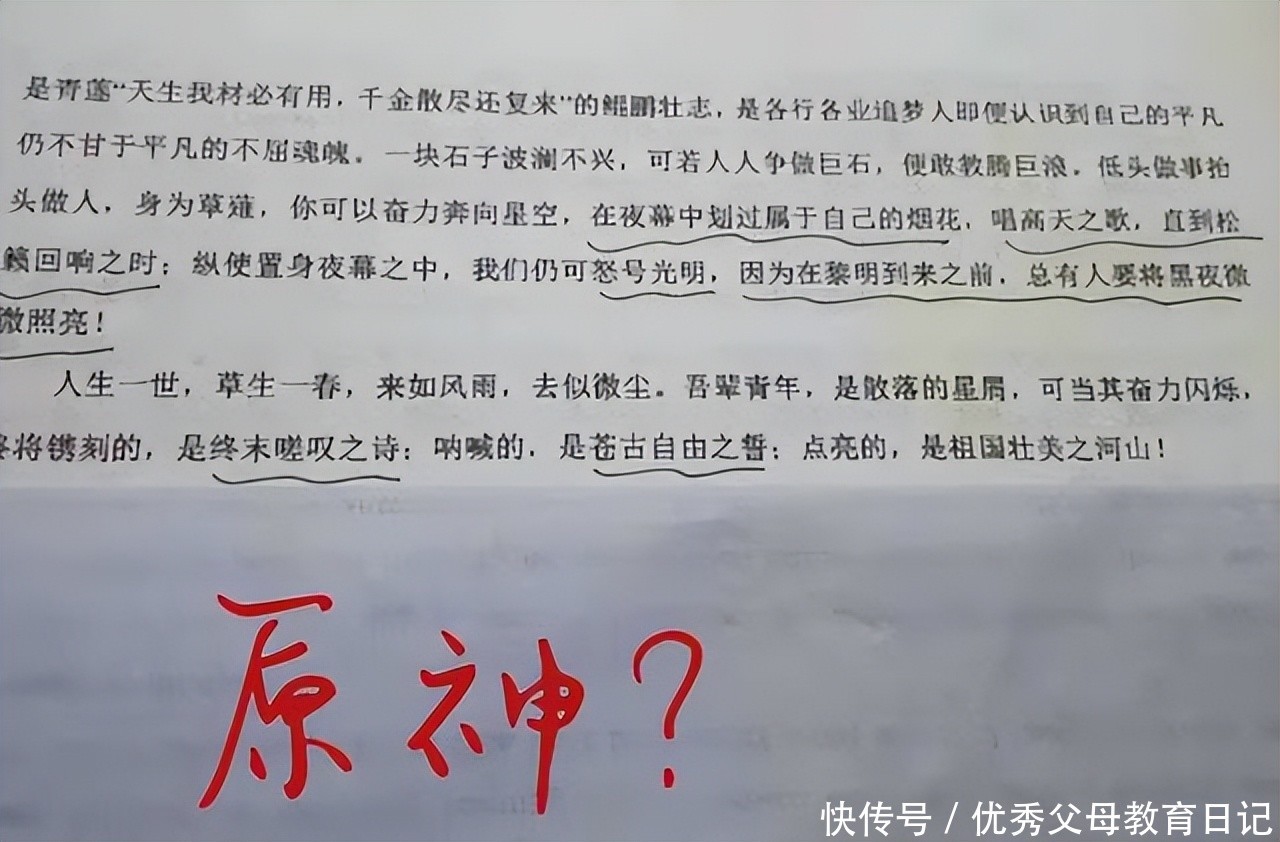 是青莲“天生我材必有用，千金散尽还复来”的鲲鹏壮志，是各行各业追梦人即便认识到自己的平凡
仍不甘于平凡的不屈魂魄。一块石子波澜不兴，可若人人争做巨石，便敢教腾巨浪。低头做事抬
头做人，身为草薤，你可以奋力奔向星空，在夜幕中划过属于自己的烟花，唱高天之歌，直到松
籁回响之时；纵使置身夜幕之中，我们仍可怒号光明，因为在黎明到来之前，总有人要将黑夜微
微照亮！
人生一世，草生一春，来如风雨，去似微尘。吾辈青年，是散落的星屑，可当其奋力闪烁，
终将镌刻的，是终末嗟叹之诗；呐喊的，是苍古自由之誓；点亮的，是祖国壮美之河山！
原神？
快传号 / 优秀父母教育日记